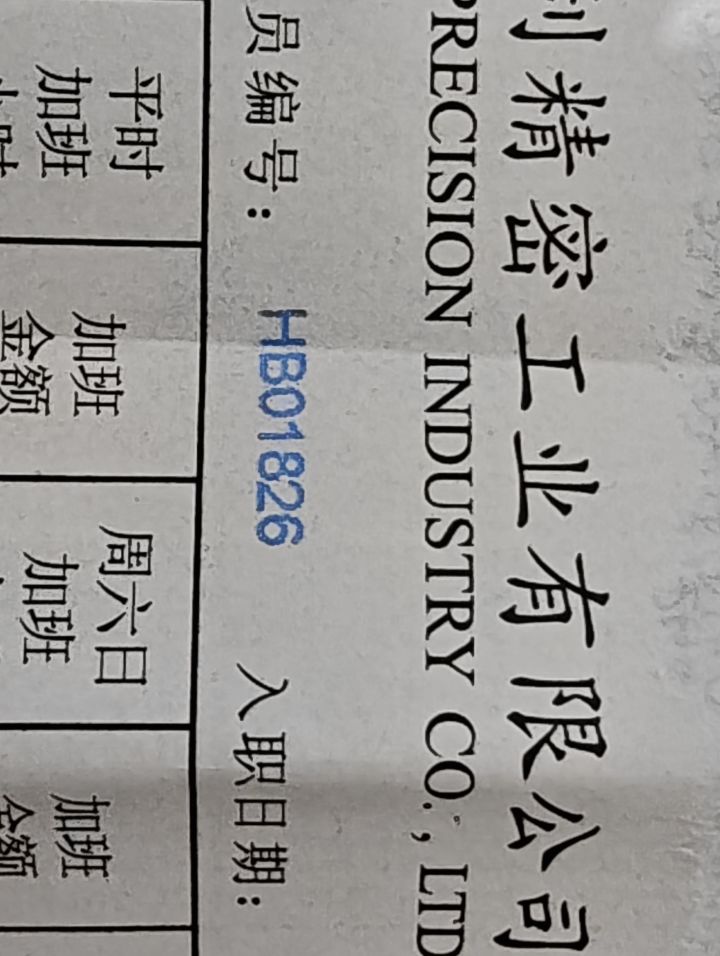 利精密工业有限公司
PRECISION INDUSTRY CO., LTD
员编号: HB01826 入职日期:
平时 加班 周六日 加班
加班 金额 加班 金额